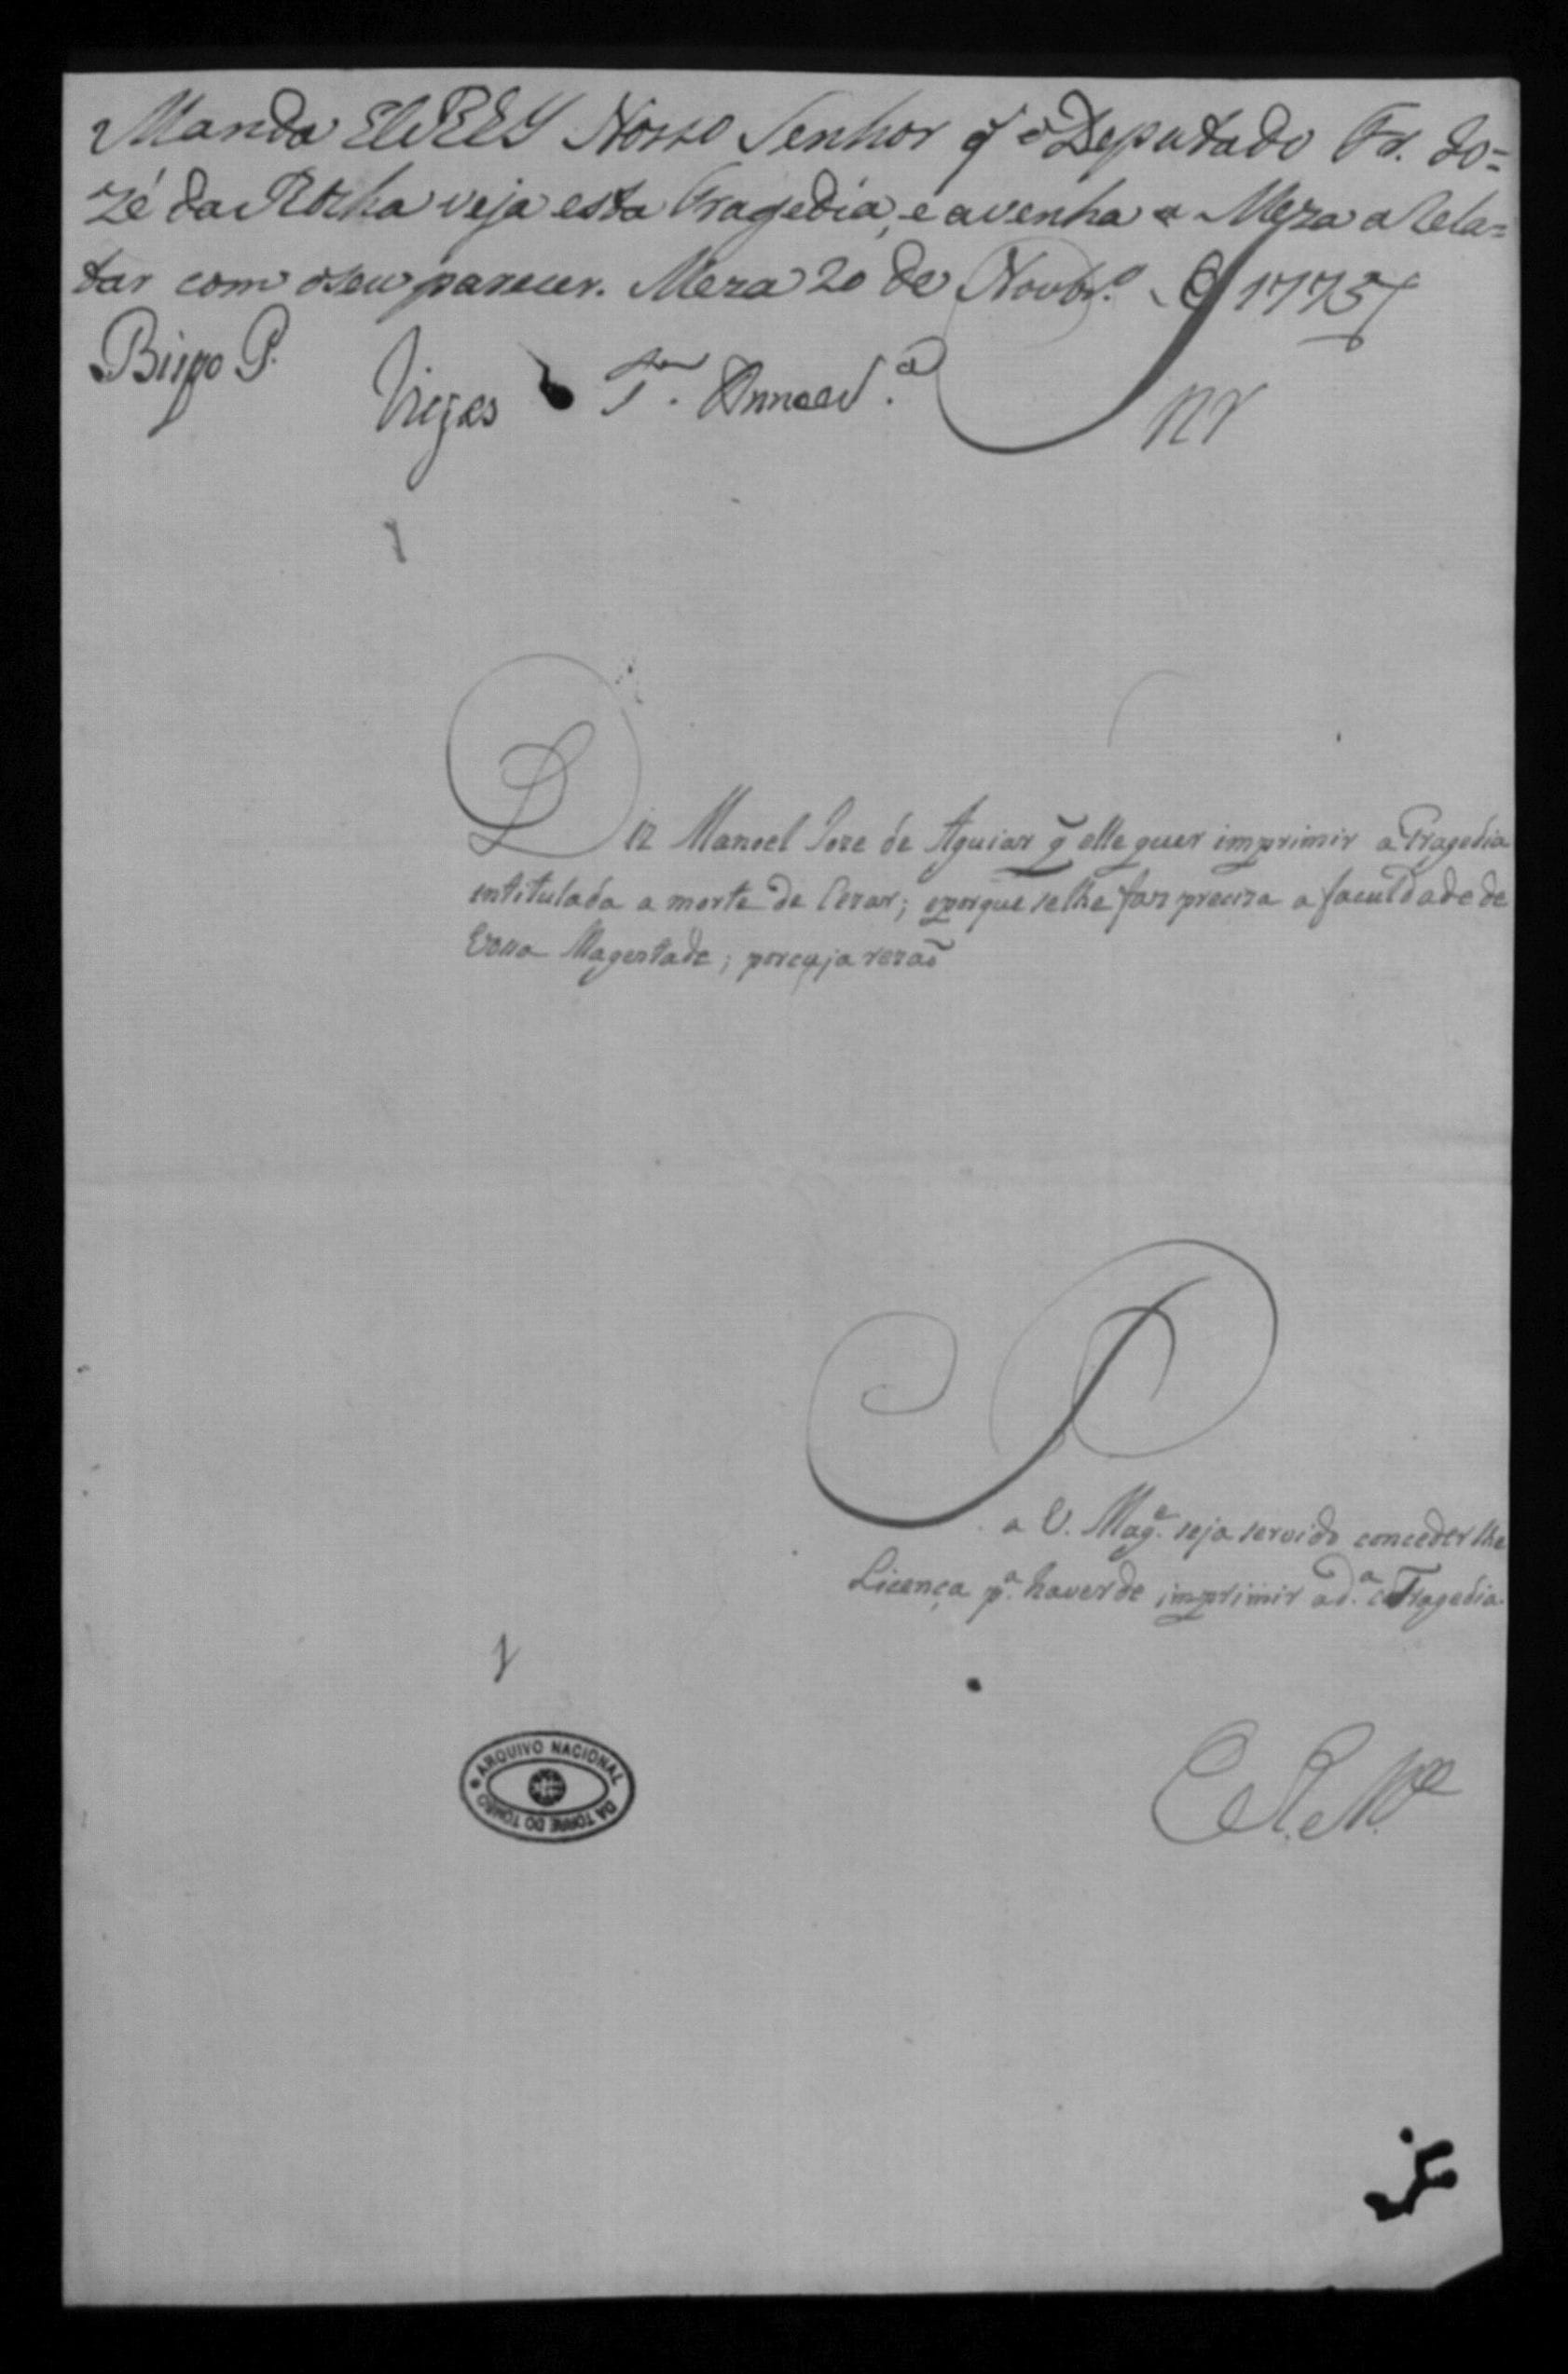 Manda ElREY Nosso Senhor q̃ o Deputado Fr. Jo=
zé da Rocha veja esta Tragedia, e a venha a Meza a Rela=
tar com o seu parecer. Meza 20 de Novbr.º de 1775
Bispo P. Viegas
Diz Manoel Joze de Aguiar q̃ elle quer imprimir a Tragedia
intitulada a morte de Cezar; e porque se lhe faz preciza a faculdade de
Vossa Magestade; por cuja rezaõ
P
a V. Mag.e seja servido conceder lhe
Licença p.a haver de imprimir a d.a Tragedia.
E R. M.ce
ARQUIVO NACIONAL DA TORRE DO TOMBO